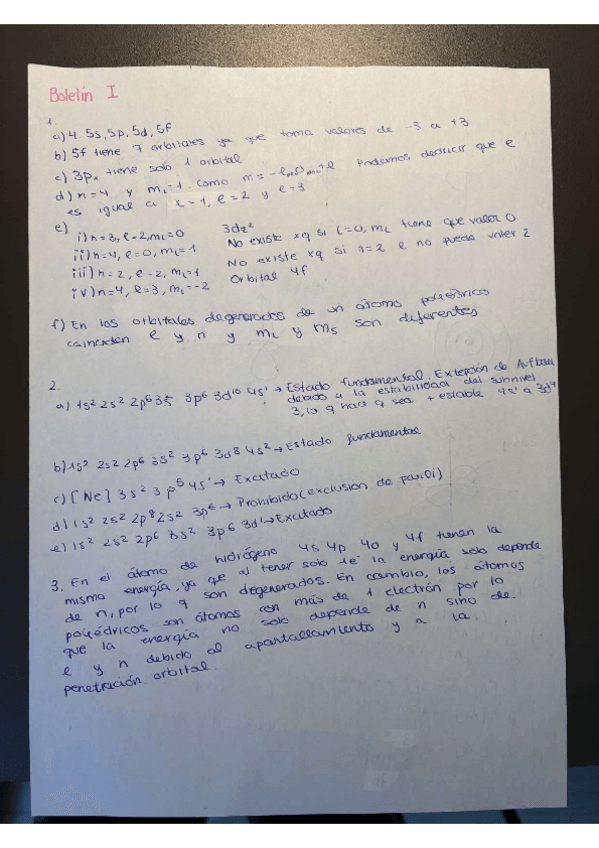 Boletín I
1.
a) 4. 5s, 5p, 5d, 5f
b) 5f tiene 7 orbitales ya que toma valores de -3 a +3
c) 3px tiene solo 1 orbital
d) n=4 y mL=1. Como m = -l,...0,...+l Podemos deducir que l
es igual a l=1, l=2 y l=3
e)
i) n=3, l=2, mL=0 3dz²
ii) n=4, l=0, mL=1 No existe xq si l=0, mL tiene que valer 0
iii) n=2, l=2, mL=1 No existe xq si n=2 l no puede valer 2
iv) n=4, l=3, mL=-2 Orbital 4f
f) En los orbitales degenerados de un átomo poliédrico
coinciden l y n y mL y ms son diferentes
2.
a) 1s² 2s² 2p⁶ 3s² 3p⁶ 3d¹⁰ 4s¹ → Estado fundamental. Extepción de Aufbau
debido a la estabilidad del subnivel
3, lo q hace q sea + estable 4s¹ a 3d⁹
b) 1s² 2s² 2p⁶ 3s² 3p⁶ 3d⁸ 4s² → Estado fundamental
c) [Ne] 3s² 3p⁵ 4s¹ → Excitado
d) 1s² 2s² 2p⁸ 2s² 3p⁶ → Prohibido (exclusión de pauli)
e) 1s² 2s² 2p⁶ 3s² 3p⁶ 3d¹ → Excitado
3. En el átomo de hidrógeno 4s 4p 4d y 4f tienen la
misma energía, ya que al tener solo 1e⁻ la energía solo depende
de n, por lo q son degenerados. En cambio, los átomos
poliédricos son átomos con más de 1 electrón por lo
que la energía no solo depende de n sino de
l y n debido al apantallamiento y a la
penetración orbital.